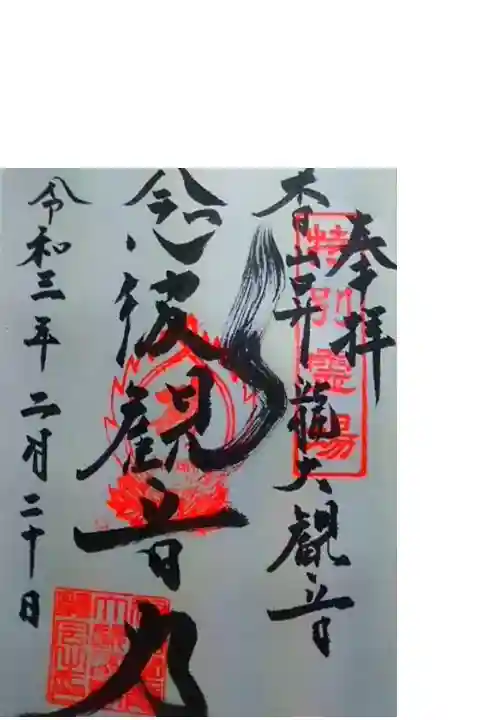 奉拝
特別霊場
香山昇龍大観音
念彼観音力
令和三年二月二十日